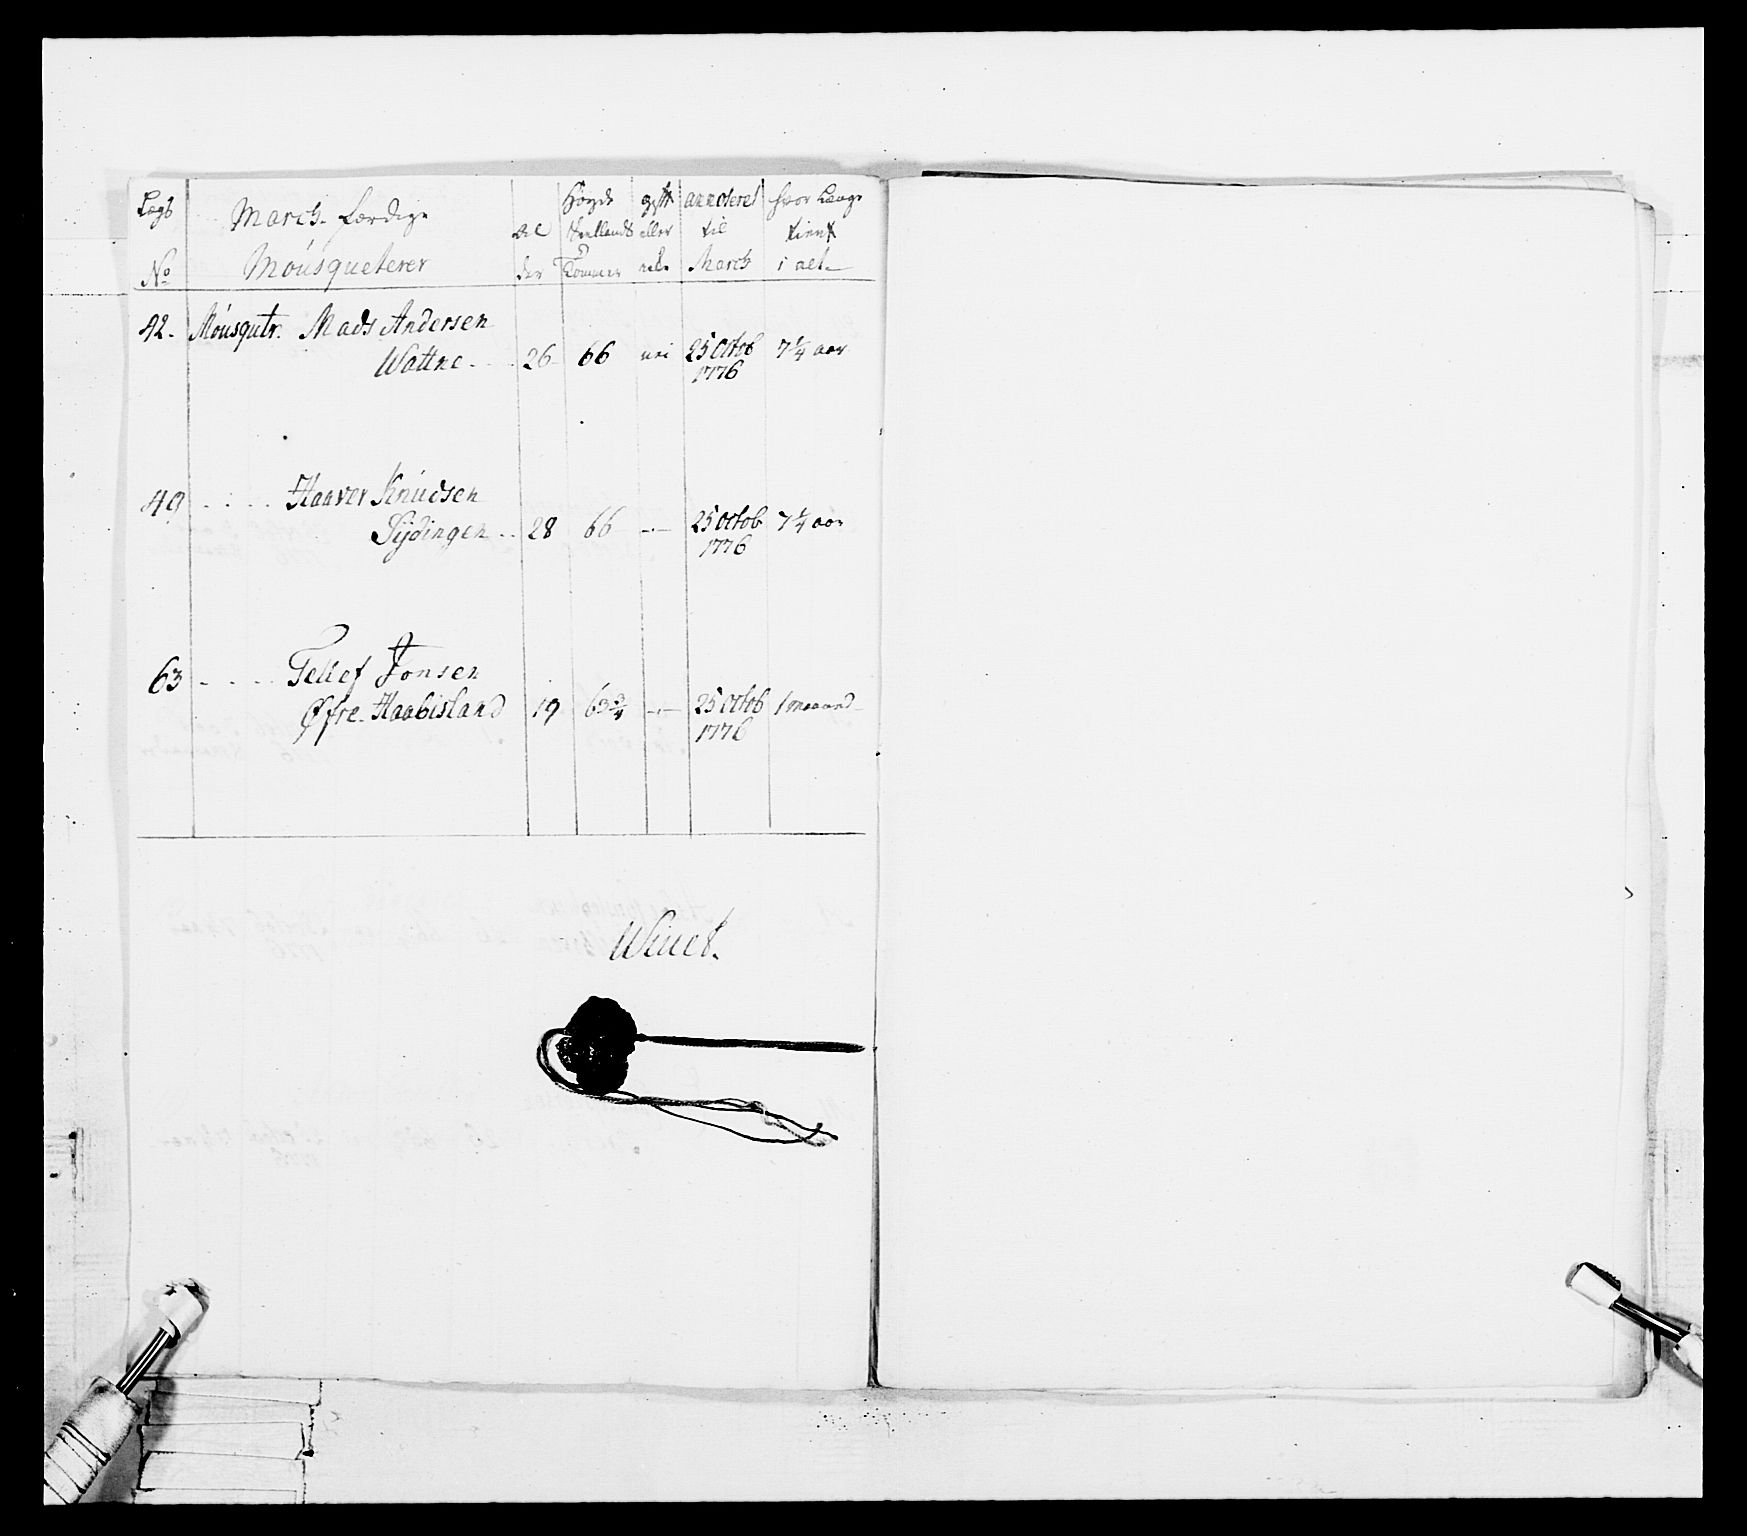 Lægs No | March-færdige Mousqueterer | Al der | Høyde Siellands Tommer | gift eller nei | annoteret til March | hvor Længe tient i alt
42. Mousqutr. Mads Andersen
Wattne - - - 26 66 nei 25 Octob 1776 7¼ aar
49 - - - - Haaver Knudsen
Sÿdingen - - 28 66 -.- 25 Octob 1776 7¼ aar
63 - - - - Tellef Jonsen
Øfre Haabisland 19 63¾ -.- 25 Octob 1776 1 maaned